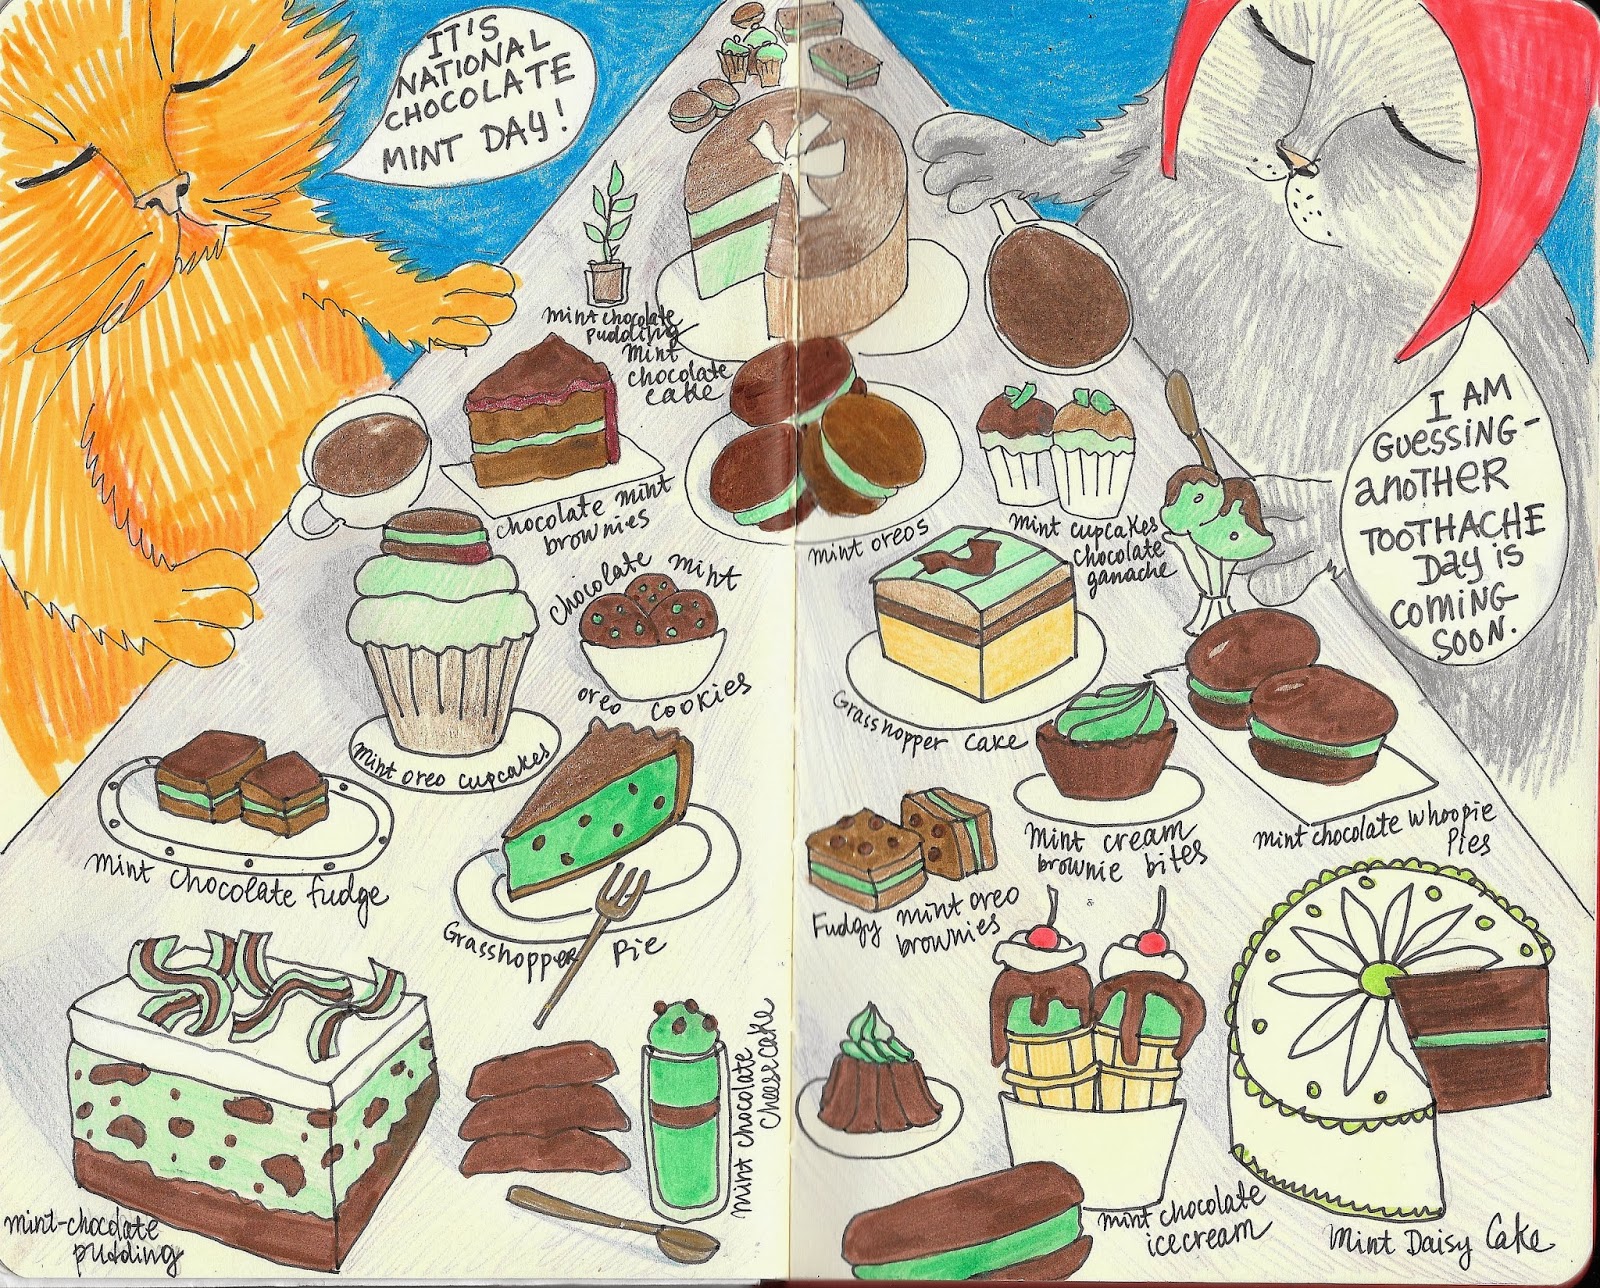 IT'S
NATIONAL
CHOCOLATE
MINT DAY!
I AM
GUESSING-
ANOTHER
TOOTHACHE
DAY IS
COMING
SOON.
mint chocolate
pudding
mint
chocolate
cake
chocolate mint
brownies
mint oreos
mint cupcakes
chocolate
ganache
chocolate mint
oreo cookies
mint oreo cupcakes
Grasshopper cake
mint chocolate fudge
Grasshopper Pie
Fudgy mint oreo
brownies
mint cream
brownie bites
mint chocolate whoopie
Pies
mint-chocolate
pudding
mint chocolate
cheesecake
mint chocolate
icecream
Mint Daisy Cake